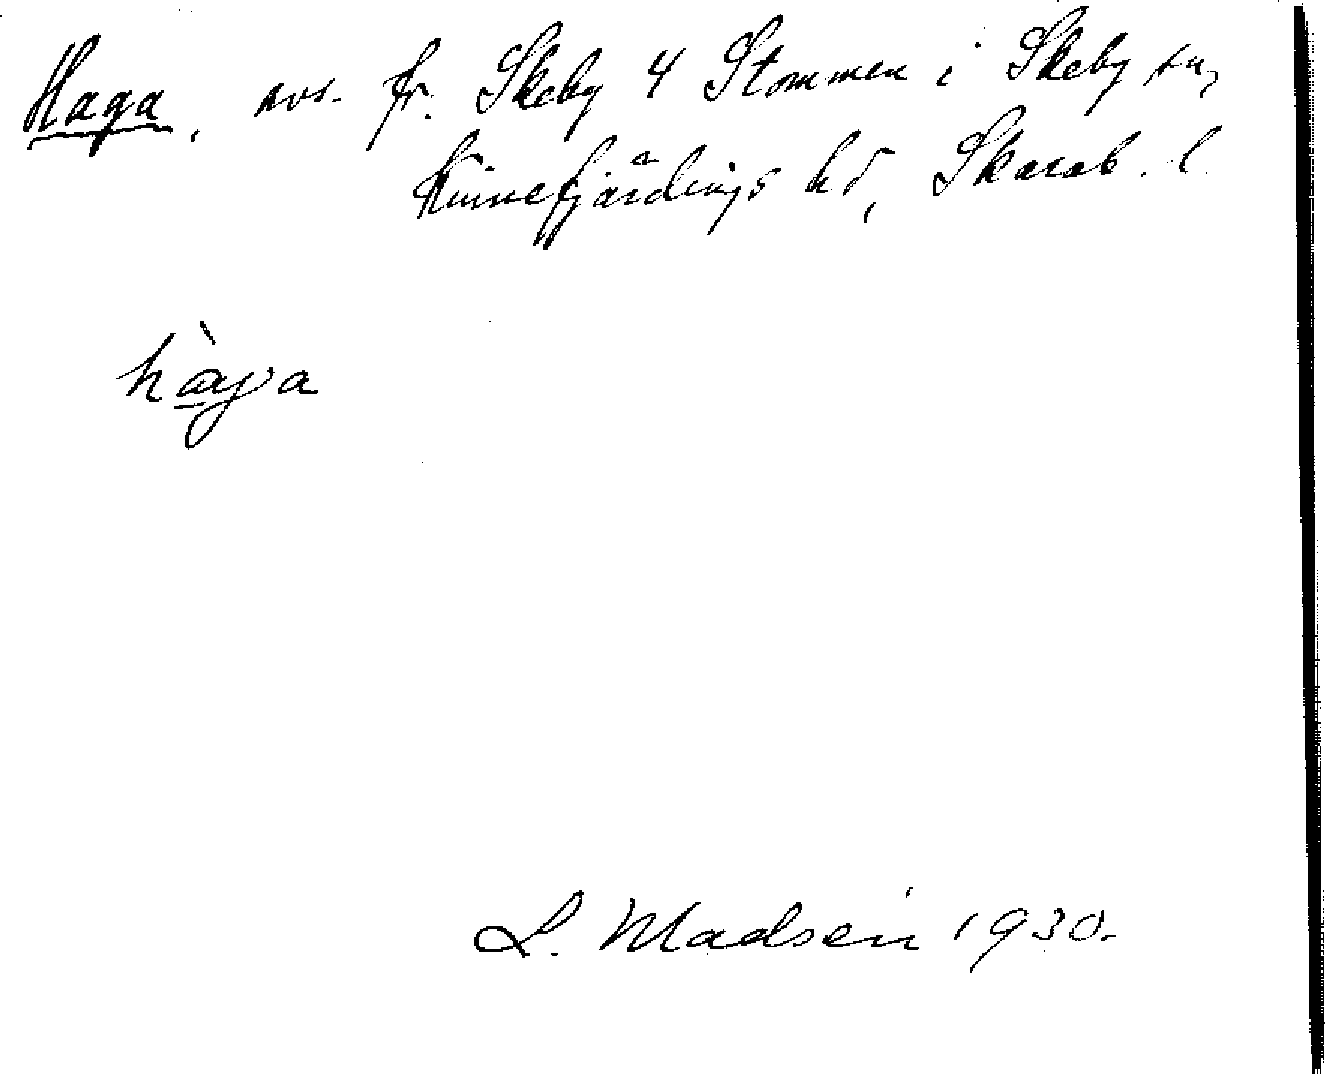 Haga, avs. fr. Skeby 4 Stommen i Skeby sn,
Kinnefjärdings hd, Skarab. l.
hàga
L. Madsén 1930.